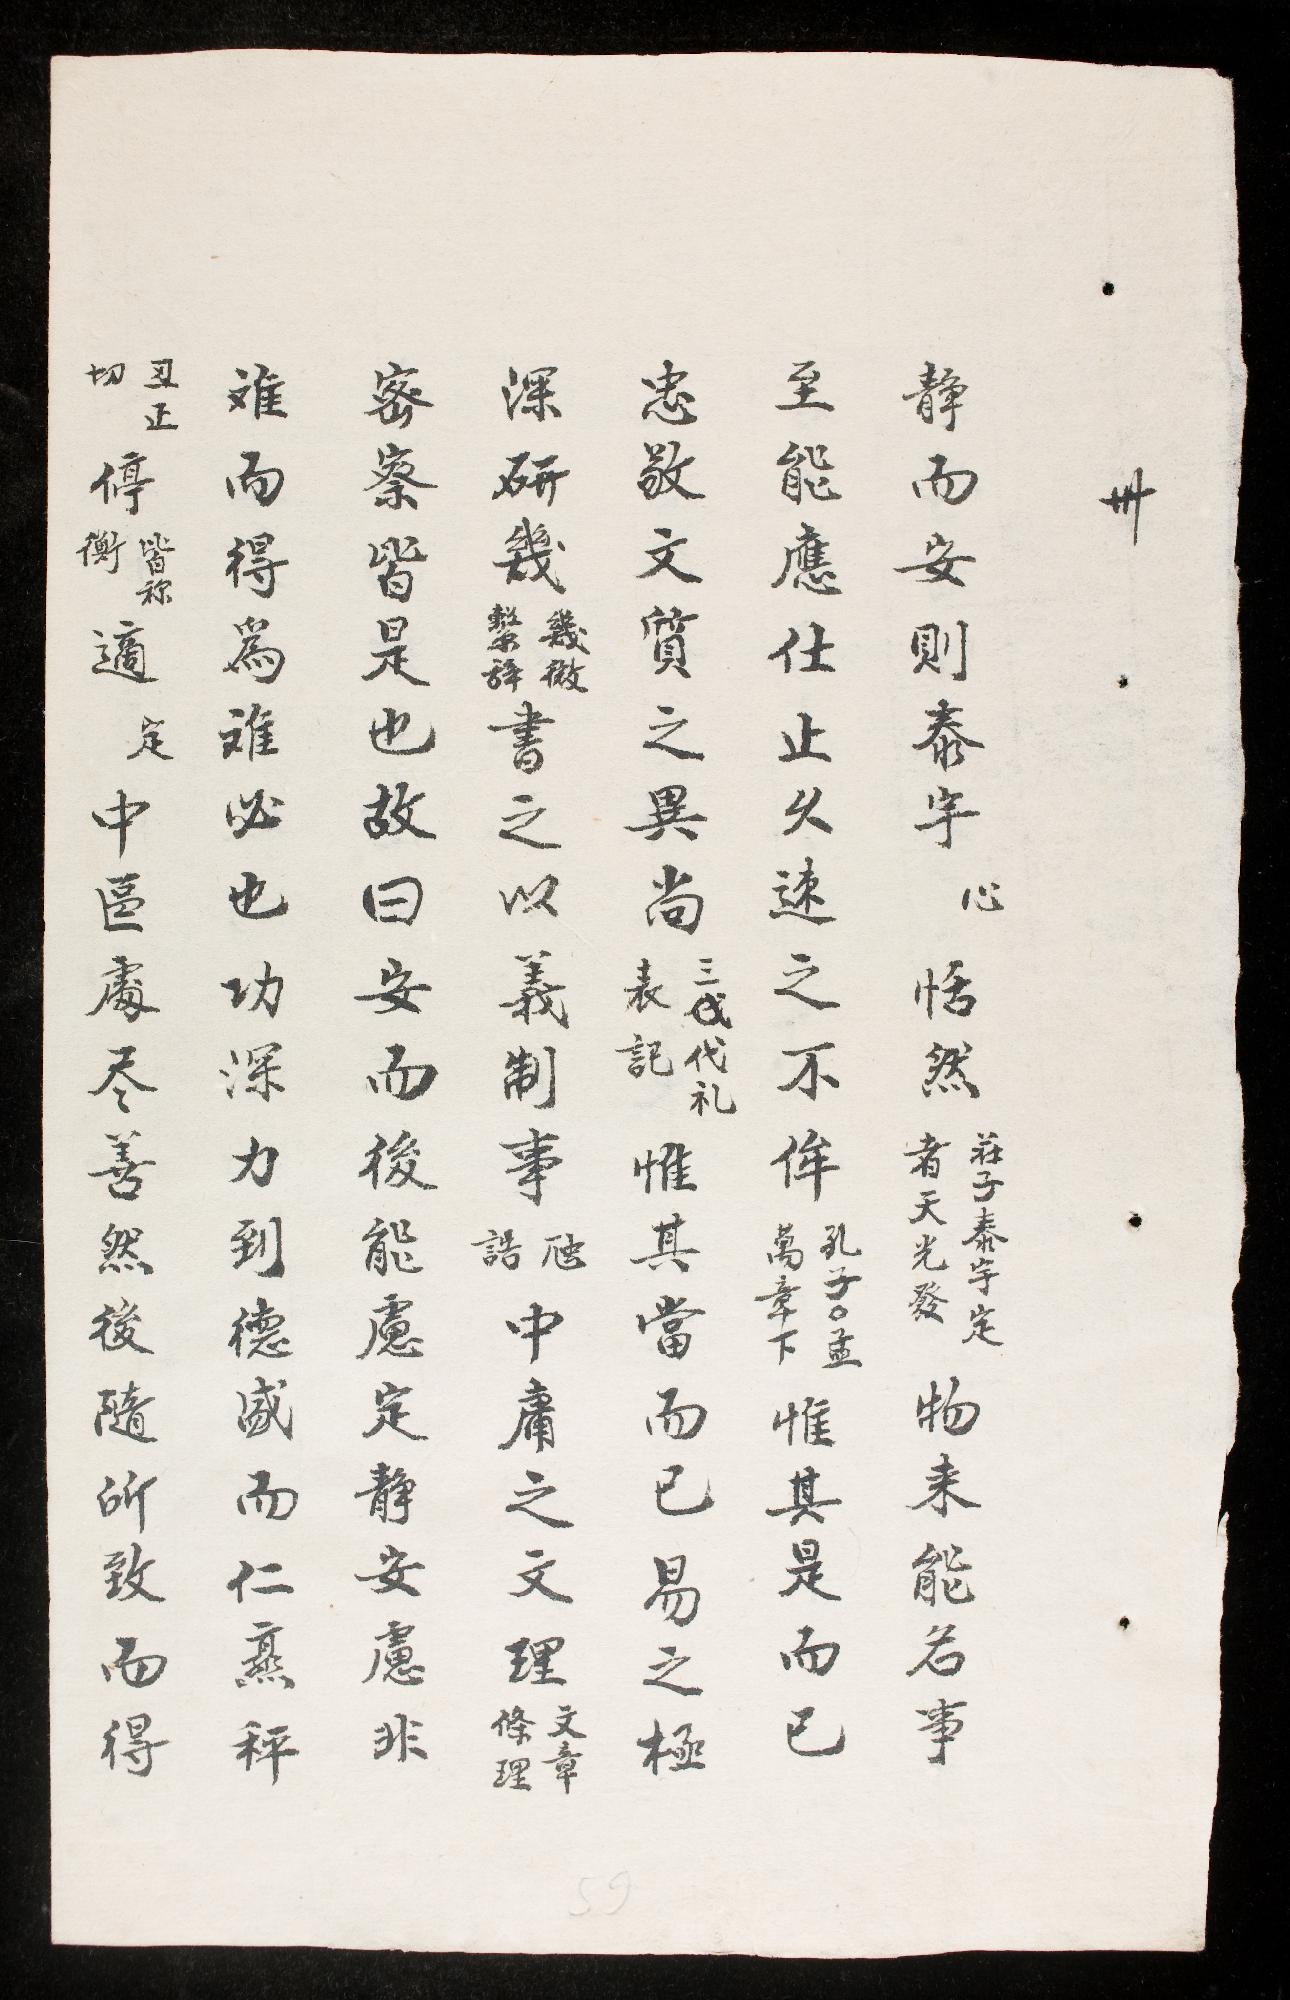 卅
静而安則泰宇心恬然莊子泰宇定者天光發物来能名事
至能應仕止久速之不侔孔子○孟萬章下惟其是而已
忠敬文質之異尚三代礼表記惟其當而已易之極
深研幾幾微繫辞書之以義制事誥中庸之文理文章條理
密察皆是也故曰安而後能慮定静安慮非
难而得為难必也功深力到德盛而仁熟秤
丑正切停皆称衡適定中區處尽善然後隨所致而得
59